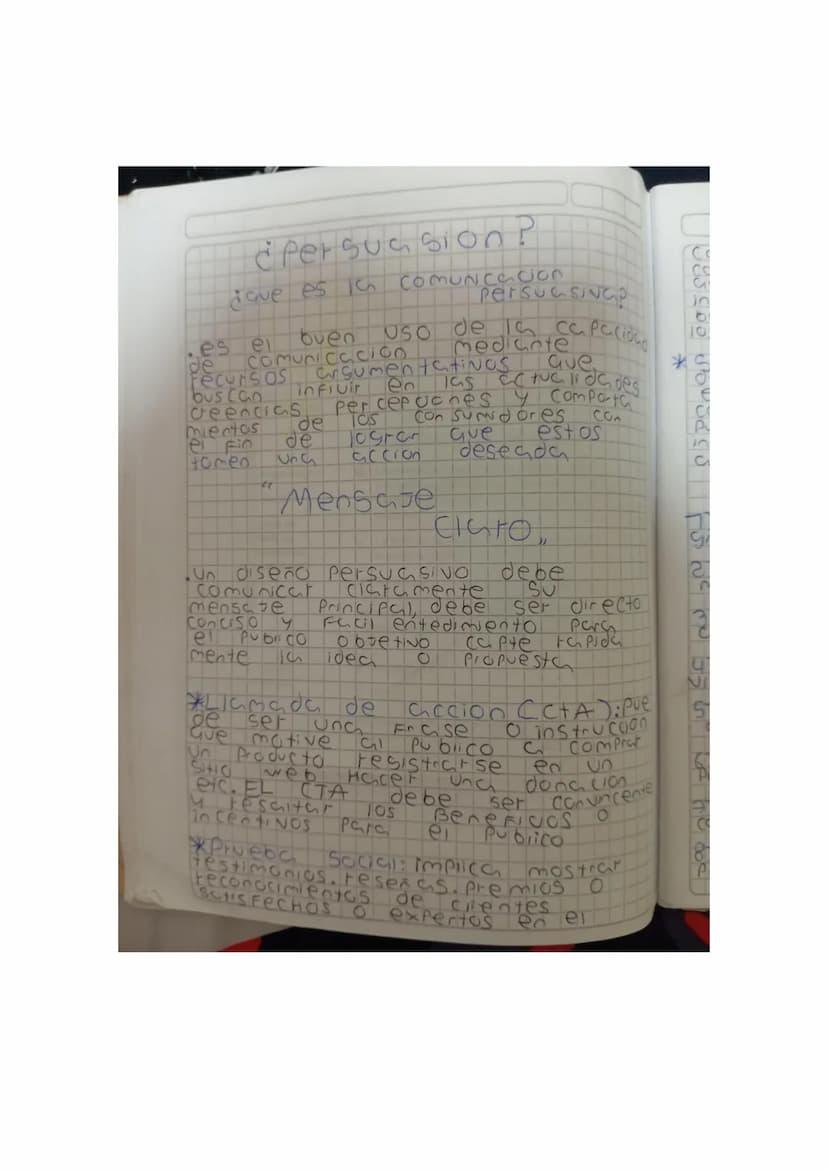 ¿Persuasion?
¿que es la comunicacion
persuasiva?
.es el buen uso de la capacidad
de comunicacion mediante
recursos argumentativos que
buscan influir en las actualidades
creencias, percepciones y comporta
mientos de los consumidores con
el fin de lograr que estos
tomen una accion deseada
"Mensaje
Claro"
.un diseño persuasivo debe
comunicar claramente su
mensaje principal, debe ser directo
conciso y facil entedimiento para
el publico objetivo capte rapida
mente la idea o propuesta
*Llamada de accion (CtA): pue
de ser una frase o instruccion
que motive al publico a comprar
un producto registrarse en un
sitio web Hacer una donacion
etc. EL CTA debe ser convincente
y resaltar los Beneficios o
incentivos para el publico
*Prueba social: implica mostrar
testimonios. reseñas. premios o
reconocimientos de clientes
satisfechos o expertos en el